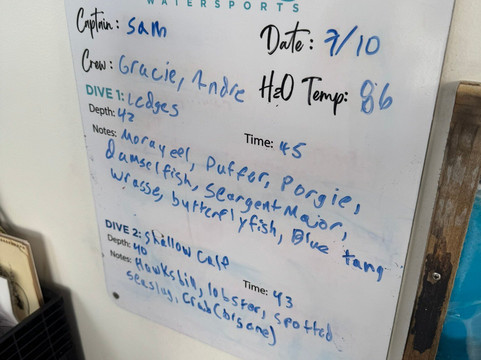 WATERSPORTS
Captain: Sam
Date: 7/10
Crew: Gracie, Andre
H2O Temp: 86
DIVE 1: Ledges
Depth: 42
Time: 45
Notes: Moray eel, Puffer, Porgie,
damselfish, Seargent Major,
wrasse, butterflyfish, Blue tang
DIVE 2: Shallow Cafe
Depth: 40
Time: 43
Notes: Hawksbill, lobster, spotted
seaslug, Crab